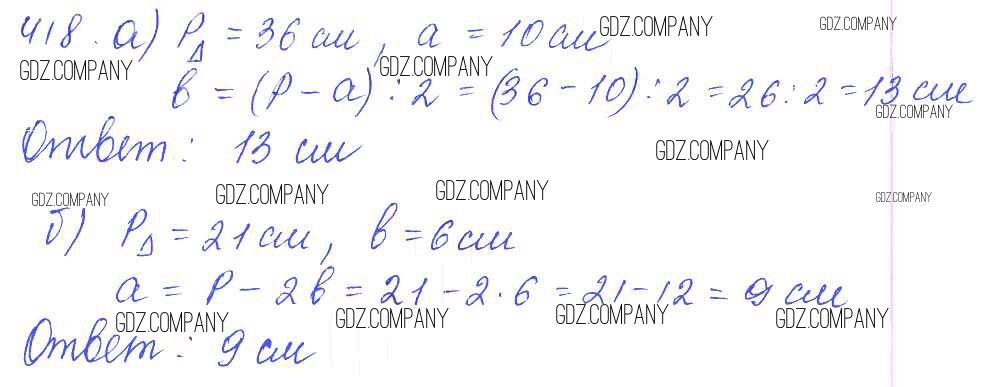 418. а) P△ = 36 см, a = 10 см GDZ.COMPANY GDZ.COMPANY
GDZ.COMPANY GDZ.COMPANY
в = (P - a) : 2 = (36 - 10) : 2 = 26 : 2 = 13 см
GDZ.COMPANY
Ответ: 13 см GDZ.COMPANY
GDZ.COMPANY GDZ.COMPANY GDZ.COMPANY GDZ.COMPANY
б) P△ = 21 см, в = 6 см
a = P - 2в = 21 - 2 · 6 = 21 - 12 = 9 см
GDZ.COMPANY GDZ.COMPANY GDZ.COMPANY GDZ.COMPANY
Ответ: 9 см